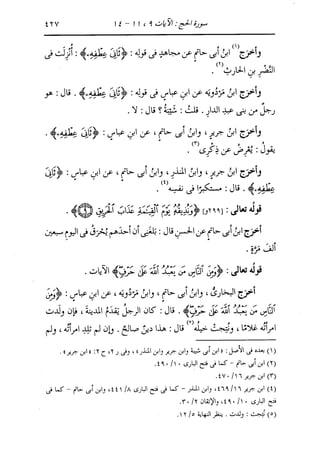 سورة الحج : الآيات ٩، ١١ - ١٤ ٤٢٧
وأخرج(١) ابنُ أبي حاتمٍ عن مجاهدٍ في قولِه : ﴿ثَانِيَ عِطْفِهِۦ﴾ : أُنزِلت في
النَّضْرِ بنِ الحارثِ(٢) .
وأخرَج ابنُ مَرْدُويَه عن ابنِ عباسٍ في قولِه : ﴿ثَانِيَ عِطْفِهِۦ﴾ . قال : هو
رجلٌ من بني عبدِ الدارِ . قلتُ : شَيْبَةُ ؟ قال : لا .
وأخرَج ابنُ جريرٍ ، وابنُ أبي حاتمٍ ، عن ابنِ عباسٍ : ﴿ثَانِيَ عِطْفِهِۦ﴾ .
يقولُ : يُعْرِضُ عن ذِكْرِي(٣) .
وأخرَج ابنُ جريرٍ ، وابنُ المنذرِ ، وابنُ أبي حاتمٍ ، عن ابنِ عباسٍ : ﴿ثَانِيَ
عِطْفِهِۦ﴾ . قال : مستكبرًا في نفسِه(٤) .
قولُه تعالى : [٢٩٩و] ﴿وَنُذِيقُهُۥ يَوْمَ ٱلْقِيَٰمَةِ عَذَابَ ٱلْحَرِيقِ ٩﴾ .
أخرَج ابنُ أبي حاتمٍ عن الحسنِ قال : بلغني أن أحدَهم يُحْرَقُ في اليومِ سبعين
ألفَ مَرَّةٍ .
قولُه تعالى : ﴿وَمِنَ ٱلنَّاسِ مَن يَعْبُدُ ٱللَّهَ عَلَىٰ حَرْفٍ﴾ الآيات .
أخرَج البخاريُّ ، وابنُ أبي حاتمٍ ، وابنُ مَرْدُويَه ، عن ابنِ عباسٍ : ﴿وَمِنَ
ٱلنَّاسِ مَن يَعْبُدُ ٱللَّهَ عَلَىٰ حَرْفٍ﴾ . قال : كان الرجلُ يَقْدَمُ المدينةَ ، فإن ولَدت
امرأتُه غلامًا ، ونُتِجت خيلُه(٥) قال : هذا دينٌ صالحٌ . وإن لم تَلِدِ امرأتُه ، ولم
(١) بعده في الأصل : «ابن أبي شيبة وابن جرير وابن المنذر»، وفي ر٢، ح٢ : «ابن جرير».
(٢) ابن أبي حاتم - كما في فتح الباري ١٠/ ٤٩٠.
(٣) ابن جرير ١٦/ ٤٧٠.
(٤) ابن جرير ١٦/ ٤٦٩، وابن المنذر - كما في فتح الباري ٨/ ٤٤١، وابن أبي حاتم - كما في
فتح الباري ١٠/ ٤٩٠، والإتقان ٢/ ٣٠.
(٥) نتجت : ولدت . ينظر النهاية ٥/ ١٢.